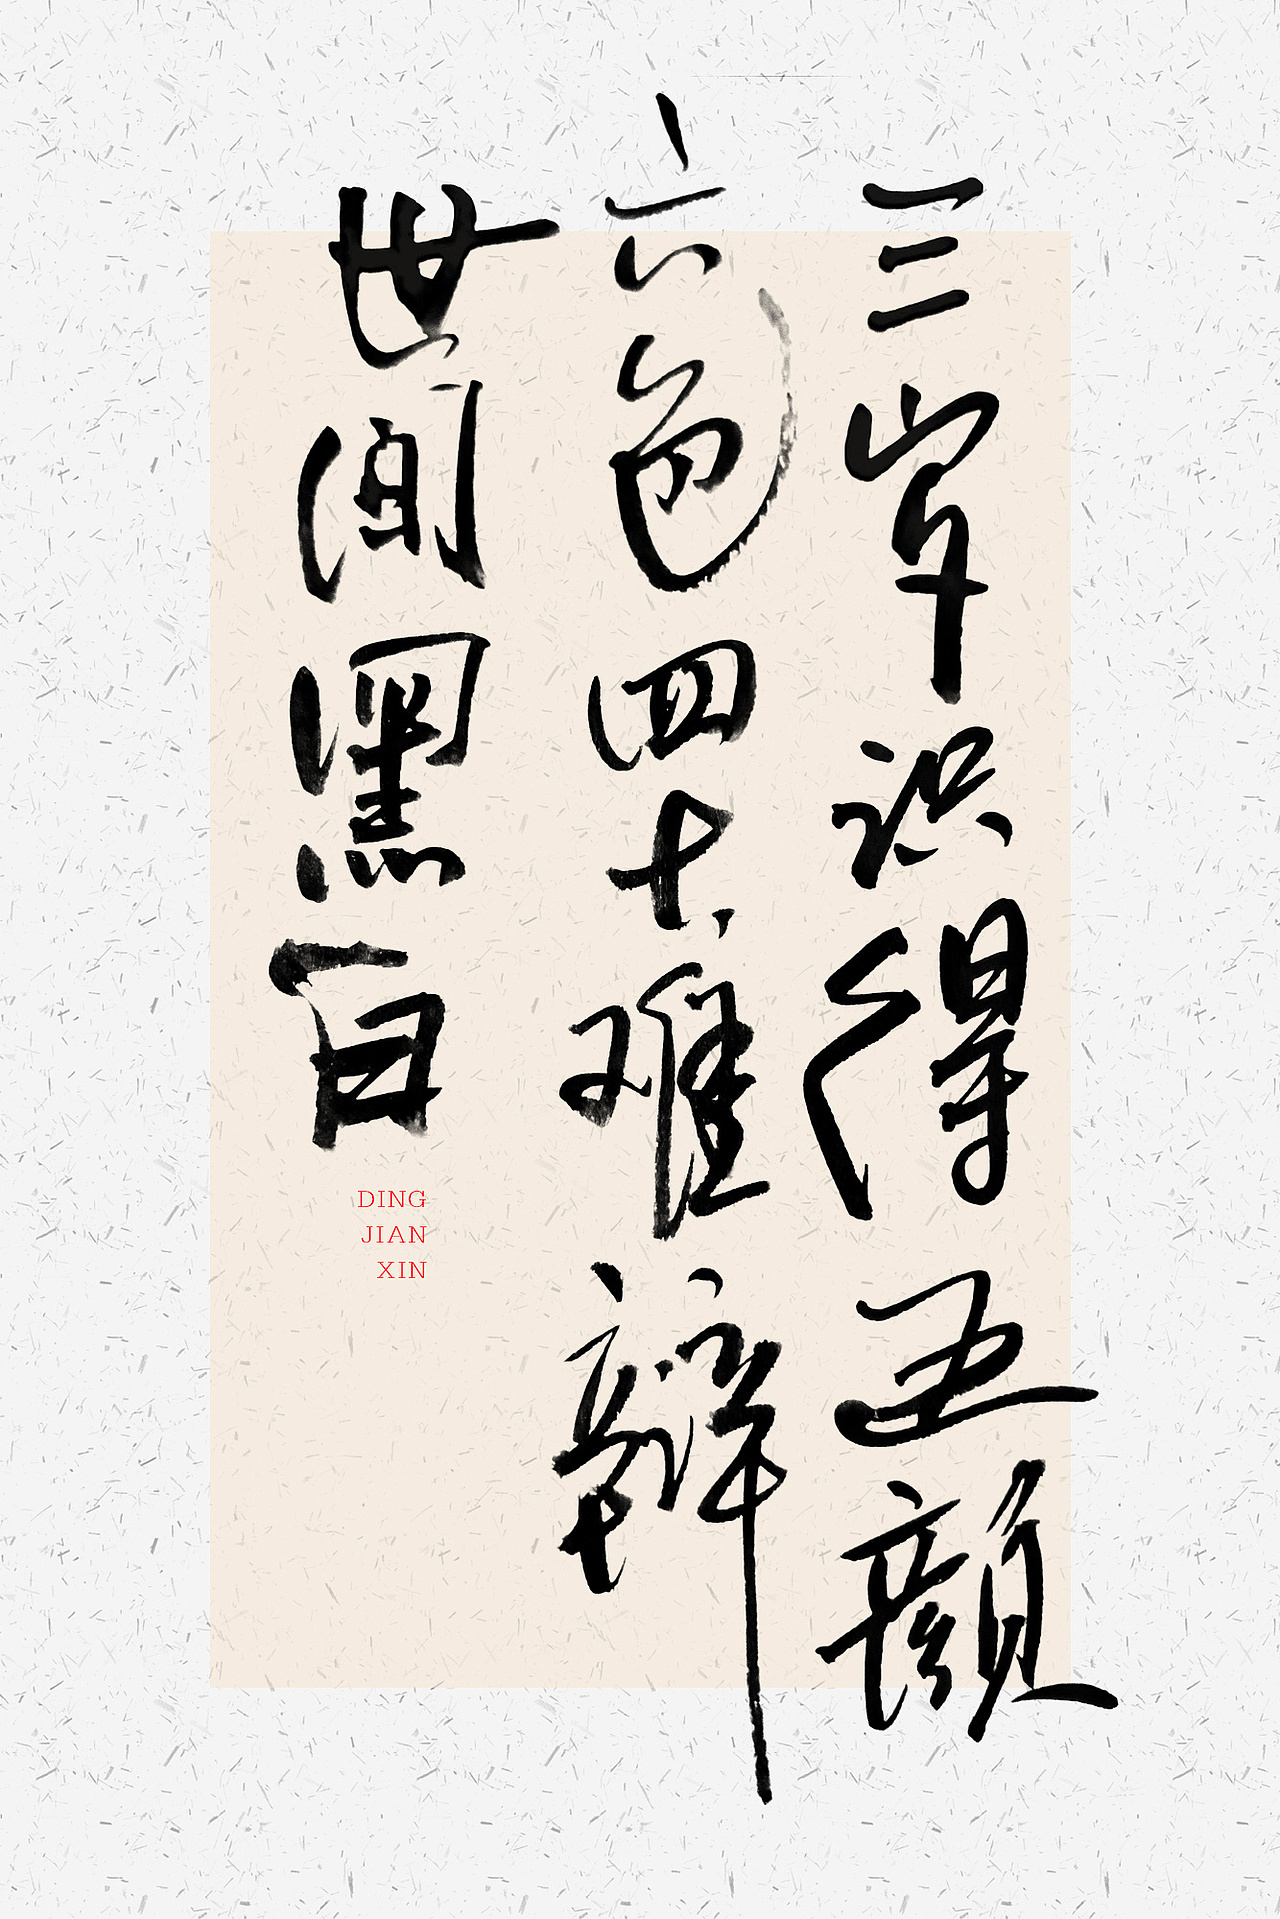 三岁识得五颜
六色四十难辨
世间黑白
DING
JIAN
XIN